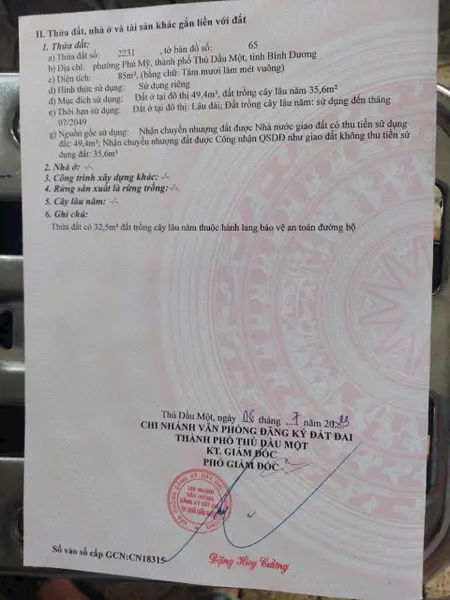 II. Thửa đất, nhà ở và tài sản khác gắn liền với đất
1. Thửa đất:
a) Thửa đất số: 2231 , tờ bản đồ số: 65
b) Địa chỉ: phường Phú Mỹ, thành phố Thủ Dầu Một, tỉnh Bình Dương
c) Diện tích: 85m², (bằng chữ: Tám mươi lăm mét vuông)
d) Hình thức sử dụng: Sử dụng riêng
đ) Mục đích sử dụng: Đất ở tại đô thị 49,4m², đất trồng cây lâu năm 35,6m²
e) Thời hạn sử dụng: Đất ở tại đô thị: Lâu dài; Đất trồng cây lâu năm: sử dụng đến tháng
07/2049
g) Nguồn gốc sử dụng: Nhận chuyển nhượng đất được Nhà nước giao đất có thu tiền sử dụng
đất: 49,4m²; Nhận chuyển nhượng đất được Công nhận QSDĐ như giao đất không thu tiền sử
dụng đất: 35,6m²
2. Nhà ở: -/-
3. Công trình xây dựng khác: -/-
4. Rừng sản xuất là rừng trồng: -/-
5. Cây lâu năm: -/-
6. Ghi chú:
Thửa đất có 32,5m² đất trồng cây lâu năm thuộc hành lang bảo vệ an toàn đường bộ
Thủ Dầu Một, ngày 06 tháng 7 năm 2023
CHI NHÁNH VĂN PHÒNG ĐĂNG KÝ ĐẤT ĐAI
THÀNH PHỐ THỦ DẦU MỘT
KT. GIÁM ĐỐC
PHÓ GIÁM ĐỐC
CHI NHÁNH
VĂN PHÒNG
ĐĂNG KÝ ĐẤT ĐAI
Đặng Huy Cường
Số vào sổ cấp GCN:CN18315